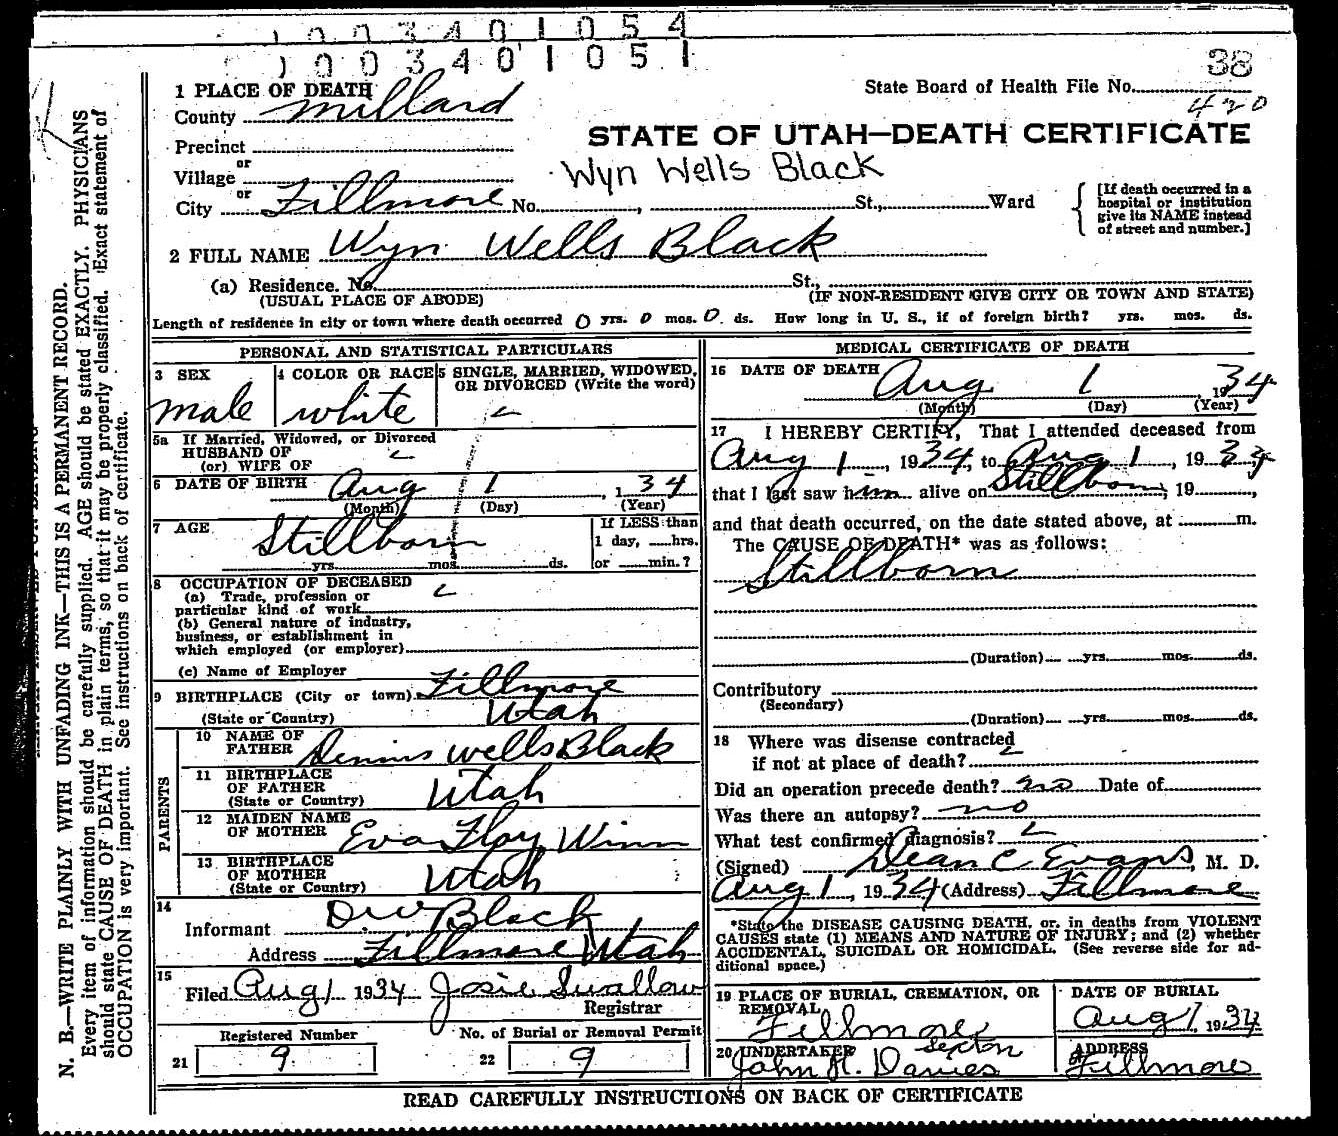 1003401054
1003401051
38
State Board of Health File No.
420
1 PLACE OF DEATH
County Millard
STATE OF UTAH—DEATH CERTIFICATE
Precinct
or
Village
Wyn Wells Black
or
City Fillmore No. , St., Ward
[If death occurred in a hospital or institution give its NAME instead of street and number.]
2 FULL NAME Wyn Wells Black
(a) Residence. No. St.,
(USUAL PLACE OF ABODE) (IF NON-RESIDENT GIVE CITY OR TOWN AND STATE)
Length of residence in city or town where death occurred 0 yrs. 0 mos. 0 ds. How long in U. S., if of foreign birth? yrs. mos. ds.
PERSONAL AND STATISTICAL PARTICULARS
3 SEX
male
4 COLOR OR RACE
white
5 SINGLE, MARRIED, WIDOWED,
OR DIVORCED (Write the word)
5a If Married, Widowed, or Divorced
HUSBAND OF
(or) WIFE OF
6 DATE OF BIRTH Aug 1, 1 34
(Month) (Day) (Year)
7 AGE
Stillborn
yrs. mos. ds.
If LESS than
1 day, hrs.
or min.?
8 OCCUPATION OF DECEASED
(a) Trade, profession or
particular kind of work
(b) General nature of industry,
business, or establishment in
which employed (or employer)
(c) Name of Employer
9 BIRTHPLACE (City or town) Fillmore
(State or Country) Utah
PARENTS
10 NAME OF
FATHER Dennis Wells Black
11 BIRTHPLACE
OF FATHER
(State or Country) Utah
12 MAIDEN NAME
OF MOTHER Eva Floy Winn
13 BIRTHPLACE
OF MOTHER
(State or Country) Utah
14
Informant D W Black
Address Fillmore Utah
15
Filed Aug 1 1934 Josie Swallow
Registrar
Registered Number
21 9
No. of Burial or Removal Permit
22 9
MEDICAL CERTIFICATE OF DEATH
16 DATE OF DEATH Aug 1 1934
(Month) (Day) (Year)
17 I HEREBY CERTIFY, That I attended deceased from
Aug 1, 1934, to Aug 1, 1934
that I last saw him alive on Stillborn, 19 ,
and that death occurred, on the date stated above, at m.
The CAUSE OF DEATH* was as follows:
Stillborn
(Duration) yrs. mos. ds.
Contributory
(Secondary)
(Duration) yrs. mos. ds.
18 Where was disease contracted
if not at place of death?
Did an operation precede death? no Date of
Was there an autopsy? no
What test confirmed diagnosis?
(Signed) Dean C Evans, M. D.
Aug 1, 1934 (Address) Fillmore
*State the DISEASE CAUSING DEATH, or, in deaths from VIOLENT
CAUSES state (1) MEANS AND NATURE OF INJURY; and (2) whether
ACCIDENTAL, SUICIDAL OR HOMICIDAL. (See reverse side for ad-
ditional space.)
19 PLACE OF BURIAL, CREMATION, OR
REMOVAL
Fillmore
DATE OF BURIAL
Aug 1 1934
20 UNDERTAKER Sexton
John H. Davies
ADDRESS
Fillmore
READ CAREFULLY INSTRUCTIONS ON BACK OF CERTIFICATE
N. B.—WRITE PLAINLY WITH UNFADING INK—THIS IS A PERMANENT RECORD.
Every item of information should be carefully supplied. AGE should be stated EXACTLY. PHYSICIANS
should state CAUSE OF DEATH in plain terms, so that it may be properly classified. Exact statement of
OCCUPATION is very important. See instructions on back of certificate.